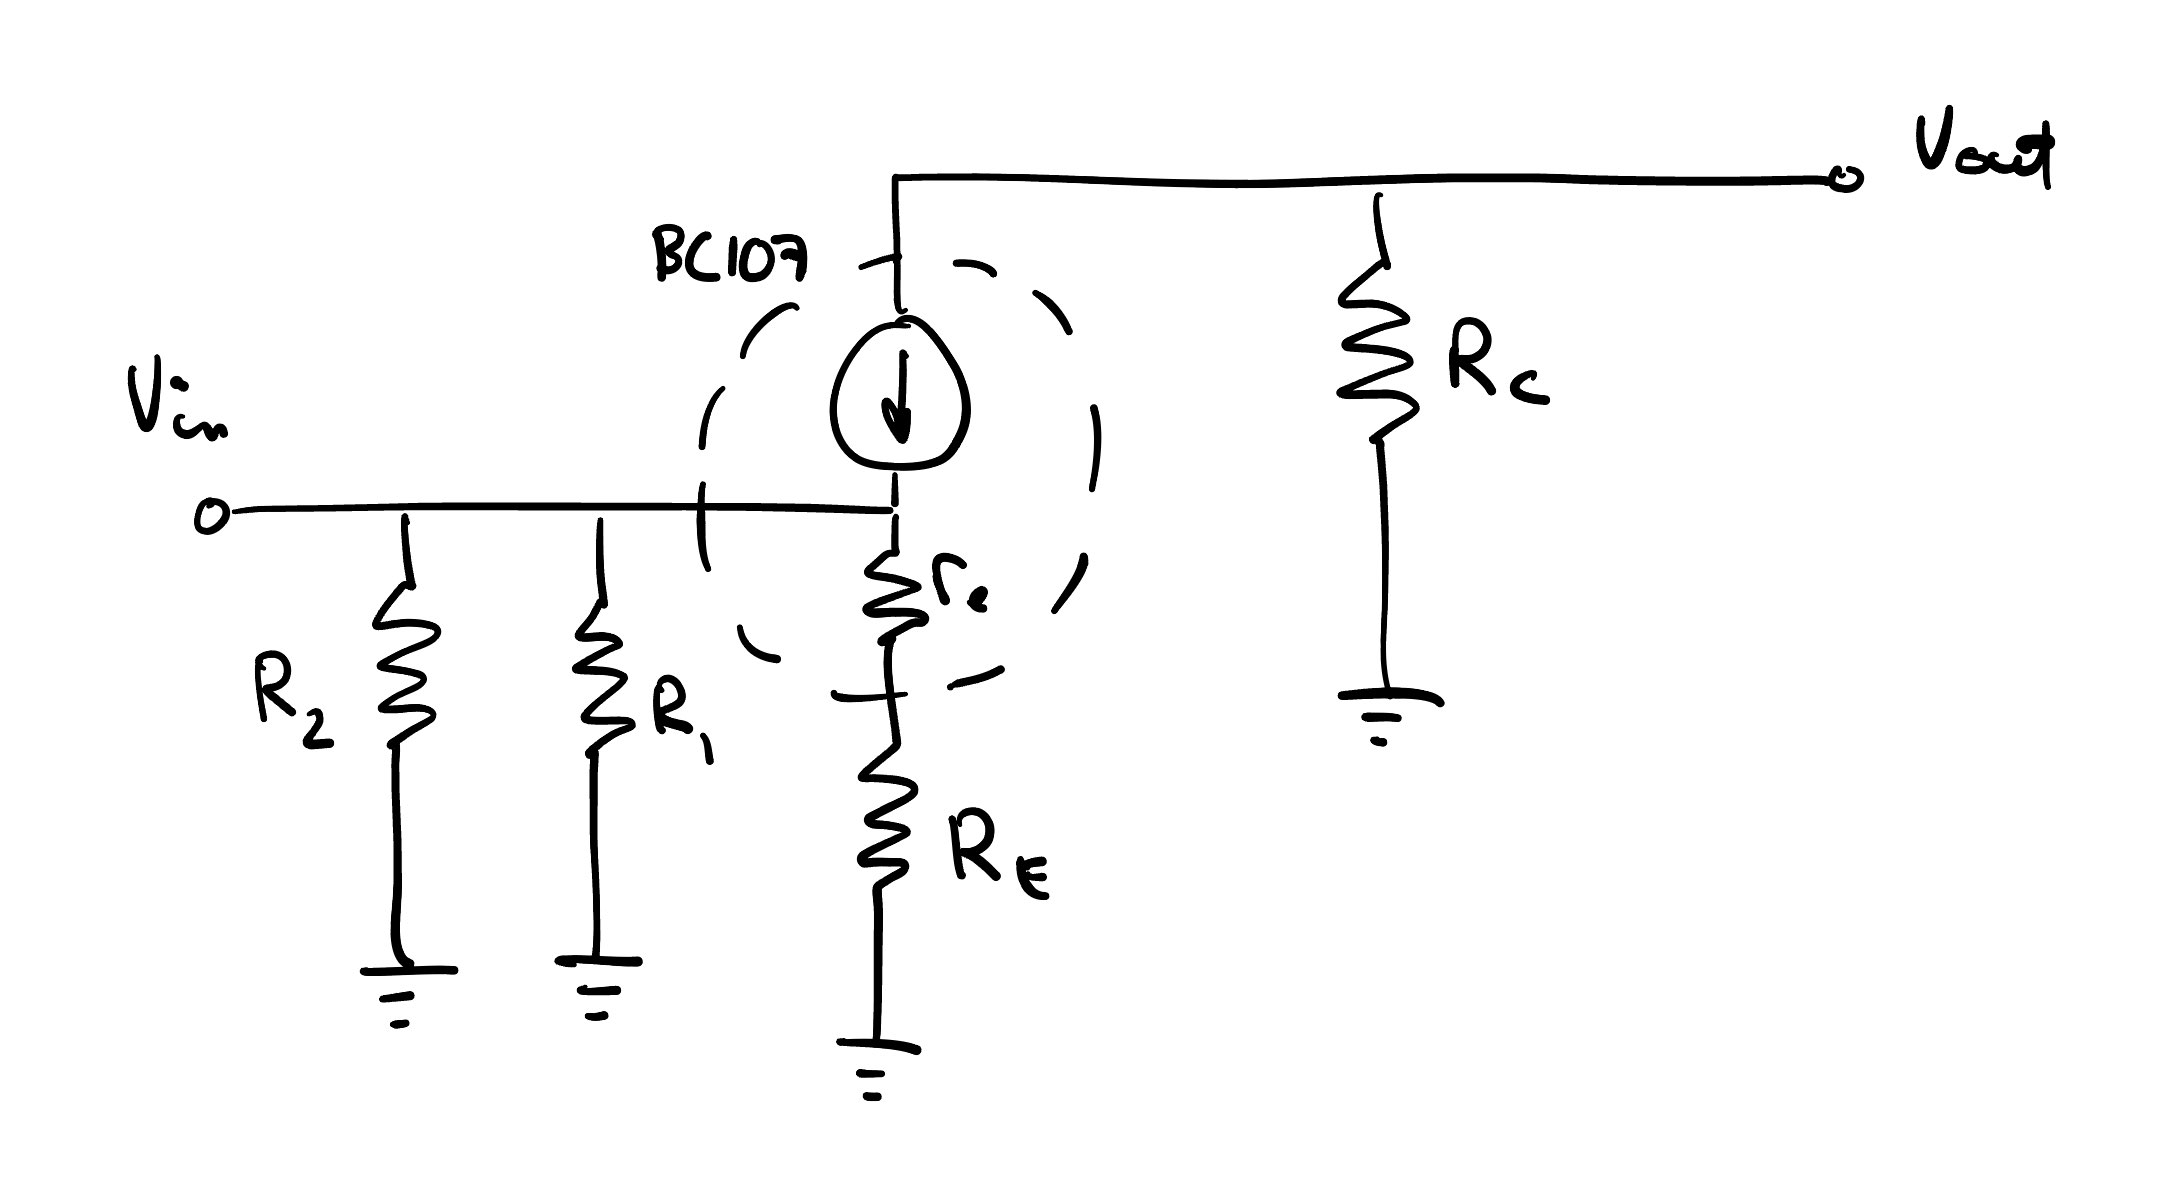 Vout
BC107
Vin
RC
re
R2
R1
RE